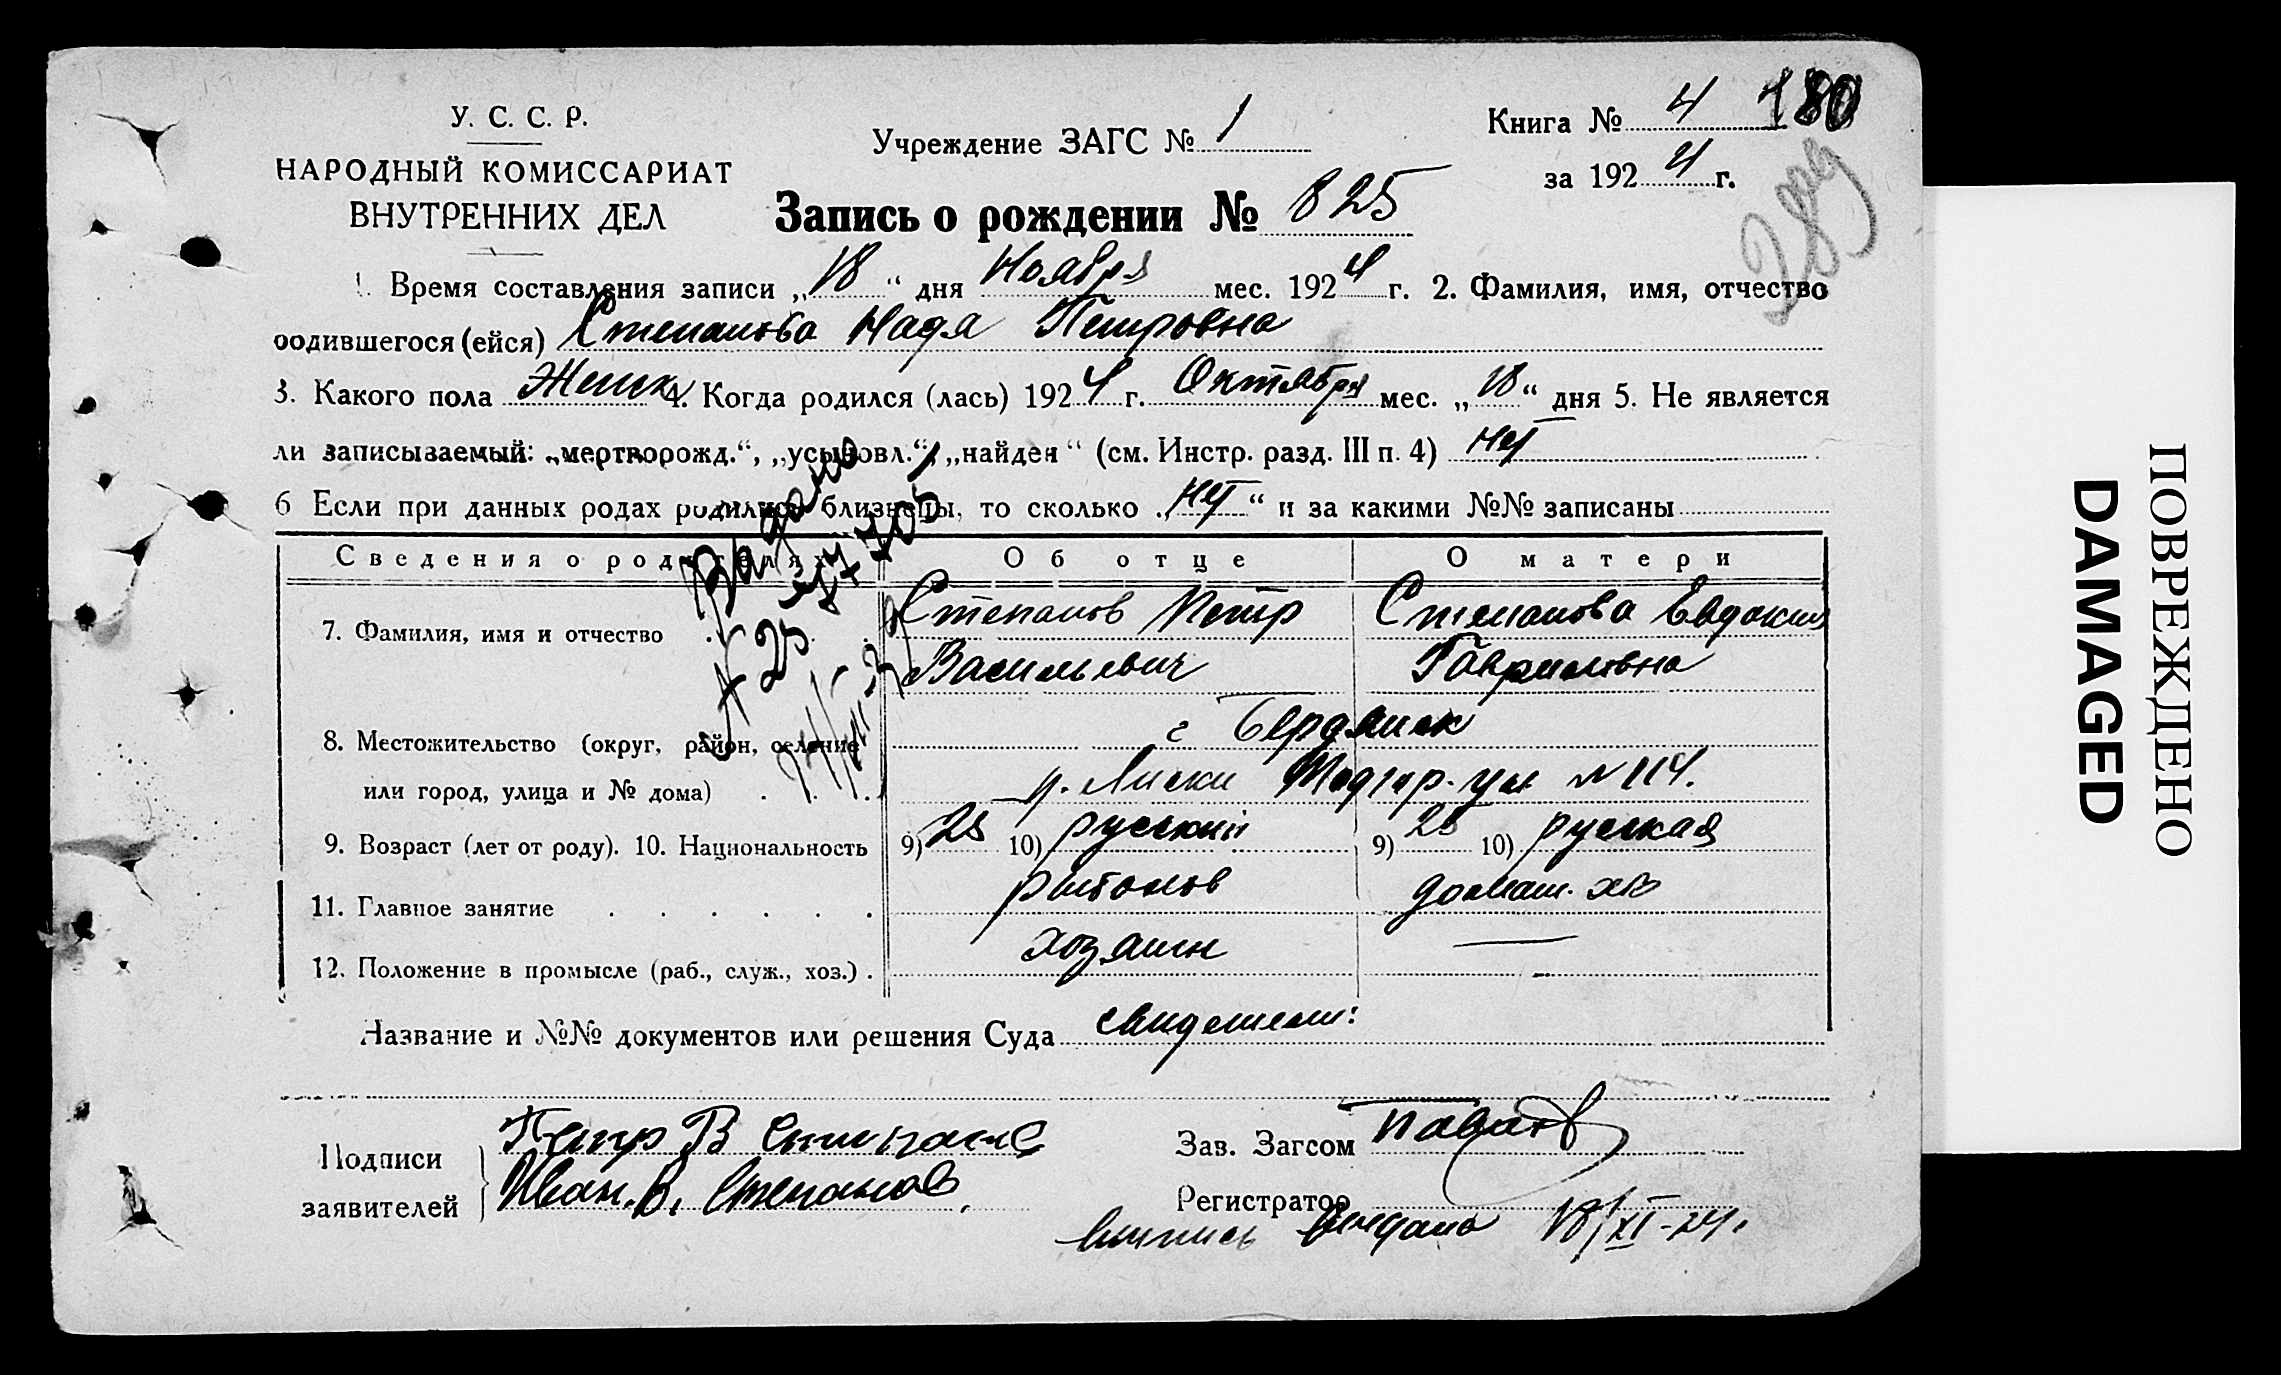 У. С. С. Р.
НАРОДНЫЙ КОМИССАРИАТ
ВНУТРЕННИХ ДЕЛ
Учреждение ЗАГС № 1
Книга № 4 180
за 1924 г.
Запись о рождении № 825
1. Время составления записи „18“ дня Ноября мес. 1924 г. 2. Фамилия, имя, отчество
родившегося (ейся) Степанова Надя Петровна
3. Какого пола Женск 4. Когда родился (лась) 1924 г. Октября мес. „18“ дня 5. Не является
ли записываемый: „мертворожд.“, „усыновл.“, „найден“ (см. Инстр. разд. III п. 4) нет
6 Если при данных родах родились близнецы, то сколько „нет“ и за какими №№ записаны
Сведения о родителях Об отце О матери
7. Фамилия, имя и отчество Степанов Петр Степанова Евдокия
Васильевич Гавриловна
8. Местожительство (округ, район, селение г Бердянск
или город, улица и № дома) Лиски ул №114.
9. Возраст (лет от роду). 10. Национальность 9) 25 10) русский 9) 25 10) русская
11. Главное занятие рыболов домаш. хоз
12. Положение в промысле (раб., служ., хоз.) хозяин
Название и №№ документов или решения Суда свидетели:
Подписи Петр В Степанов
заявителей Иван. В. Степанов
Зав. Загсом
Регистратор
выпись выдана 18/XI-24.
ПОВРЕЖДЕНО
DAMAGED